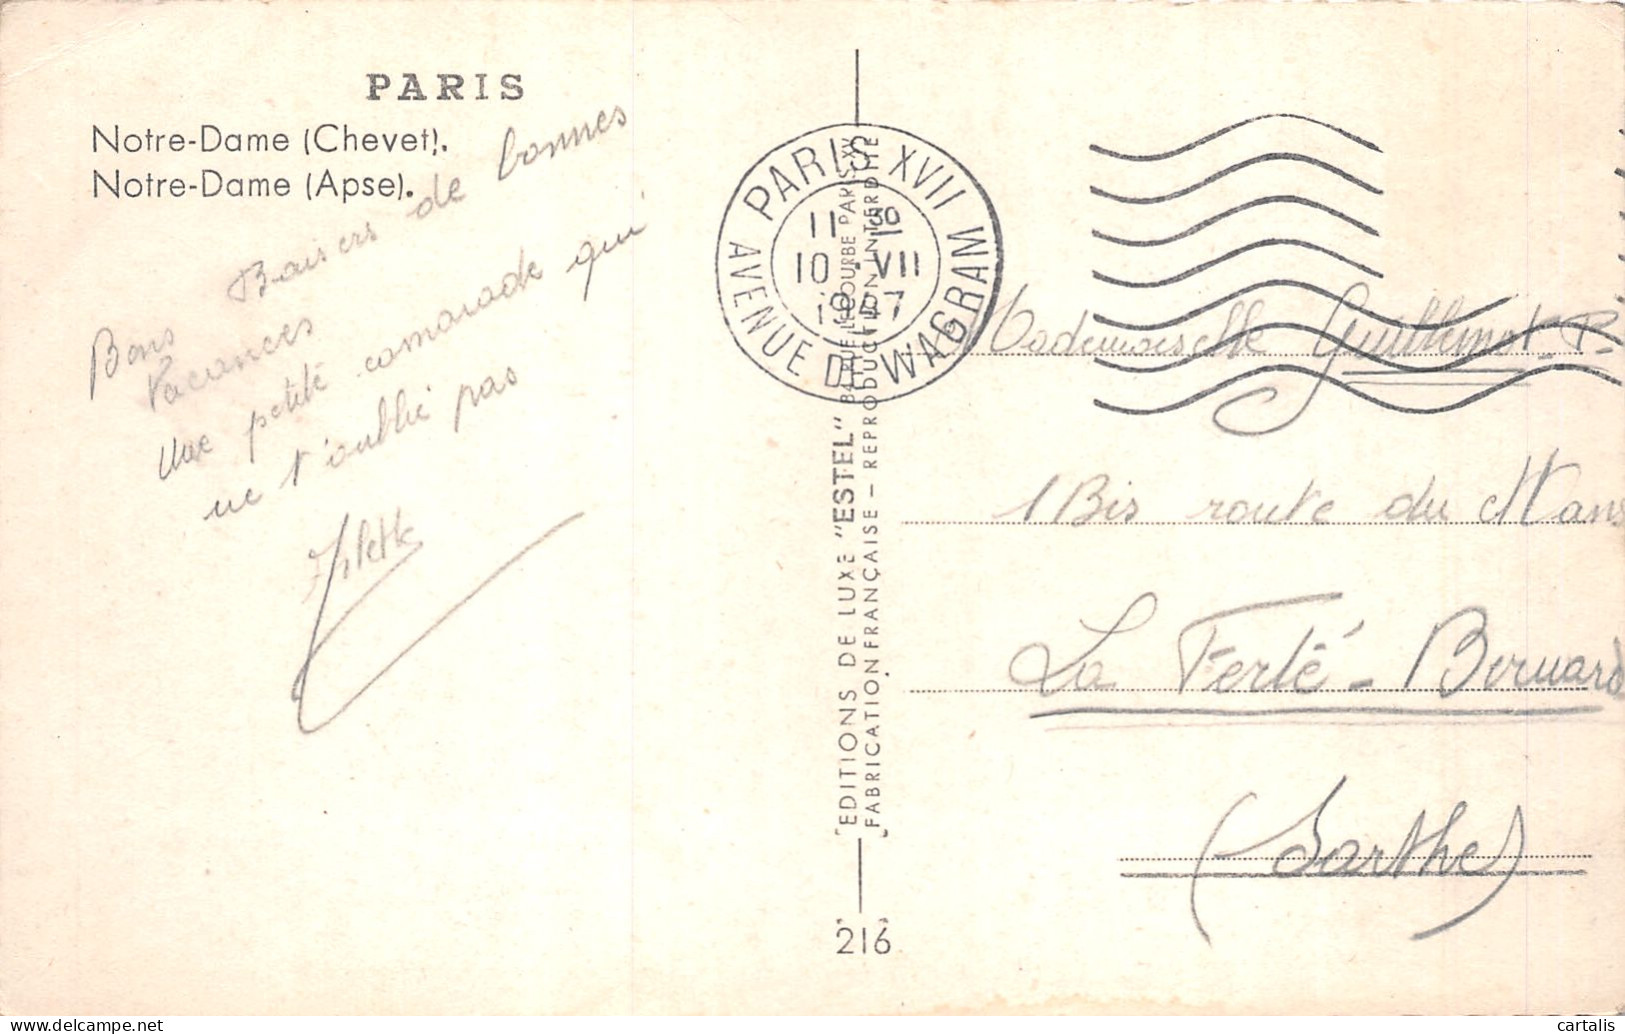 PARIS
Notre-Dame (Chevet).
Notre-Dame (Apse).
Bons Baisers de bonnes
Vacances
Une petite camarade qui
ne t'oublie pas
PARIS XVII
11 30
10 VII
AVENUE DE WAGRAM
EDITIONS DE LUXE "ESTEL" 84 RUE LECOURBE PARIS XV
FABRICATION FRANÇAISE – REPRODUCTION INTERDITE
216
Mademoiselle Guillemot P.
1 Bis route du Mans
La Ferté-Bernard
(Sarthe)
cartalis